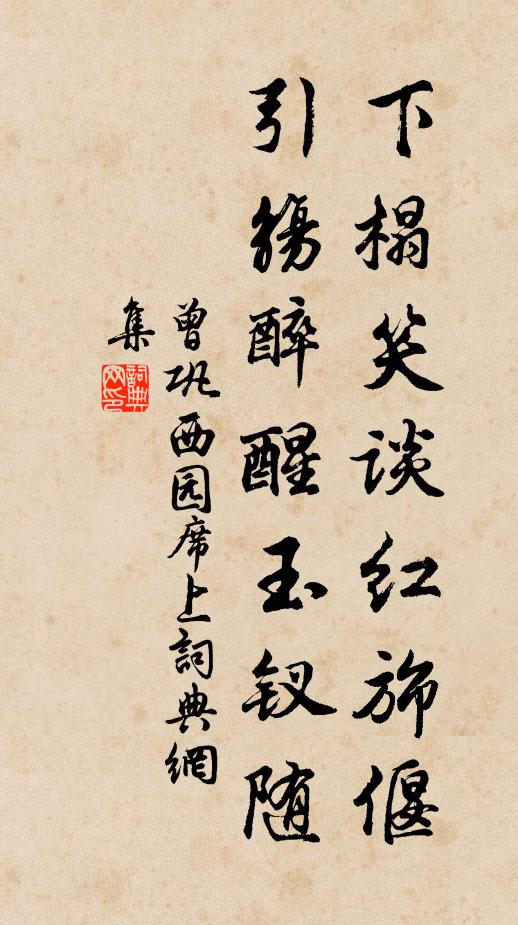 下榻笑谈红旆偃
引觞醉醒玉钗随
曾巩西园席上詞典網
集
詞典網印